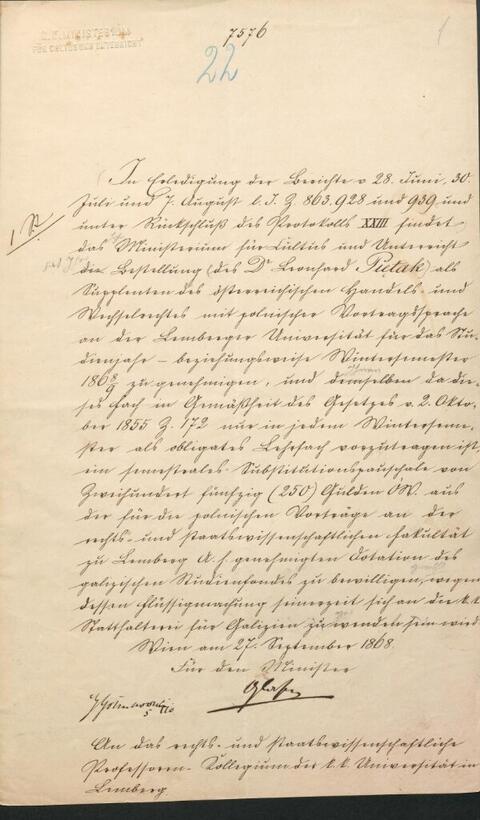 7576
1
K. K. MINISTERIUM
FÜR CULTUS UND UNTERRICHT
22
In Erledigung der Berichte v. 28. Juni, 30.
Juli und 7. August l. J. Z. 863, 928 und 939, und
unter Rückschluß des Protokolls XXIII findet
das Ministerium für Cultus und Unterricht
die Bestellung (des Dr Leonhard Piętak) als
Supplenten des österreichischen Handels- und
Wechselrechtes mit polnischer Vortragssprache
an der Lemberger Universität für das Stu-
dienjahr – beziehungsweise Wintersemester
1868/9 zu genehmigen, und demselben da die-
ses Fach in Gemäßheit des Gesetzes v. 2. Okto-
ber 1855 Z. 172 nur in jedem Winterseme-
ster als obligates Lehrfach vorzutragen ist,
ein semestrales Substitutionspauschale von
Zweihundert fünfzig (250) Gulden ÖW. aus
der für die polnischen Vorträge an der
rechts- und staatswissenschaftlichen Fakultät
zu Lemberg A. h. genehmigten Dotation des
galizischen Studienfondes zu bewilligen, wegen
dessen Flüssigmachung seinerzeit sich an die k. k.
Statthalterei für Galizien zu wenden sein wird.
Wien am 27. September 1868.
Für den Minister
Glaser
An das rechts- und staatswissenschaftliche
Professoren-Kollegium der k. k. Universität in
Lemberg